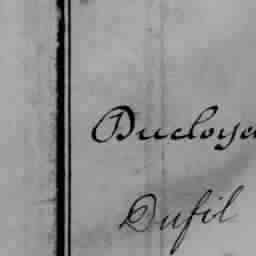 Ducloya
Dufil